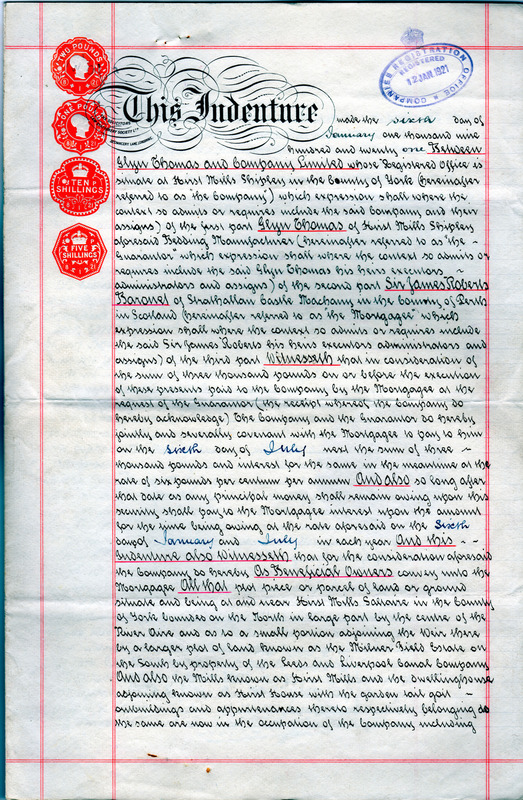 TWO POUNDS
ONE POUND
TEN
SHILLINGS
FIVE
SHILLINGS
COMPANIES REGISTRATION OFFICE
REGISTERED
12 JAN. 1921
This Indenture
made the sixth day of
January one thousand nine
hundred and twenty one Between
Glyn Thomas and Company Limited whose Registered Office is
situate at Hirst Mills Shipley in the County of York (hereinafter
referred to as "the Company") which expression shall where the
context so admits or requires include the said Company and their
assigns) of the first part Glyn Thomas of Hirst Mills Shipley
aforesaid Bedding Manufacturer (hereinafter referred to as "the ~
Guarantor" which expression shall where the context so admits or
requires include the said Glyn Thomas his heirs executors
administrators and assigns) of the second part Sir James Roberts
Baronet of Strathallan Castle Machany in the County of Perth
in Scotland (hereinafter referred to as "the Mortgagee" which
expression shall where the context so admits or requires include
the said Sir James Roberts his heirs executors administrators and
assigns) of the third part Witnesseth that in consideration of
the sum of three thousand pounds on or before the execution
of these presents paid to the Company by the Mortgagee at the
request of the Guarantor (the receipt whereof the Company do
hereby acknowledge) The Company and the Guarantor do hereby
jointly and severally covenant with the Mortgagee to pay to him
on the sixth day of July next the sum of three ~
thousand pounds and interest for the same in the meantime at the
rate of six pounds per centum per annum And also so long after
that date as any principal money shall remain owing upon this
security shall pay to the Mortgagee interest upon the amount
for the time being owing at the rate aforesaid on the Sixth
days of January and July in each year And this ~
Indenture also Witnesseth that for the consideration aforesaid
the Company do hereby As Beneficial Owners convey unto the
Mortgagee All that plot piece or parcel of land or ground
situate and being at and near Hirst Mills Saltaire in the County
of York bounded on the North in large part by the centre of the
River Aire and as to a small portion adjoining the Weir there
by a larger plot of land known as the Milner Field Estate on
the South by property of the Leeds and Liverpool Canal Company
And also the Mills known as Hirst Mills and the dwellinghouse
adjoining known as Hirst House with the garden tail goit ~
outbuildings and appurtenances thereto respectively belonging as
the same are now in the occupation of the Company including